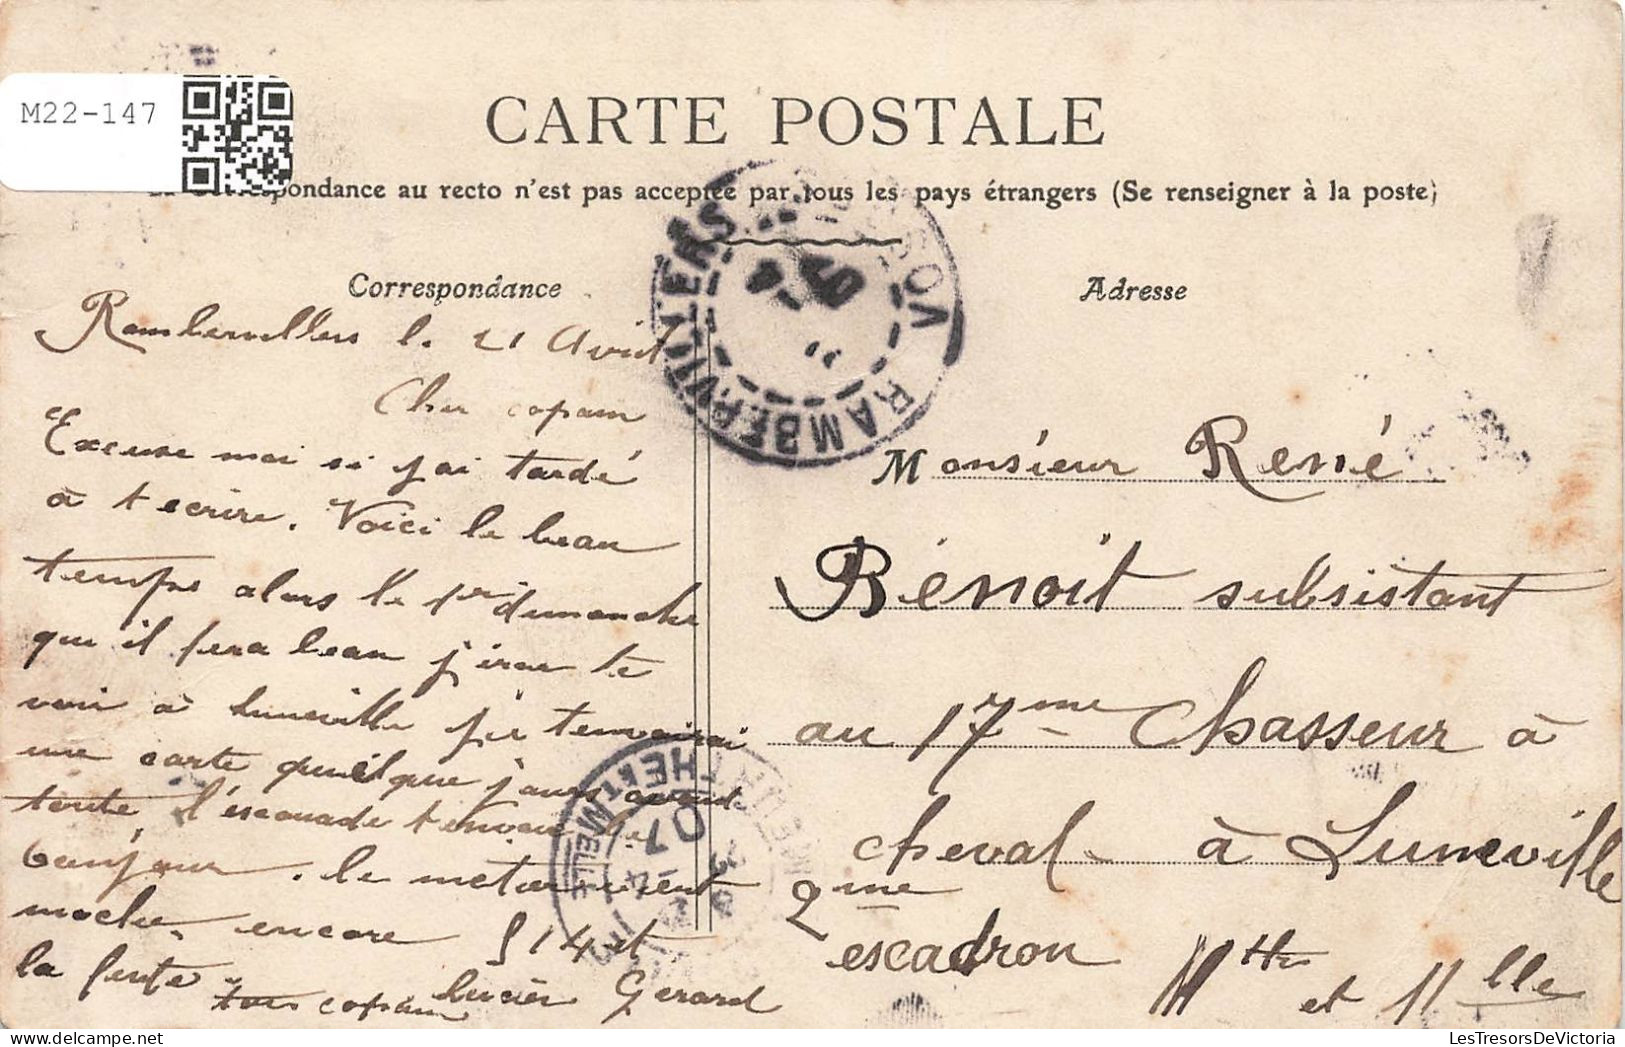 M22-147
CARTE POSTALE
La Correspondance au recto n'est pas acceptée par tous les pays étrangers (Se renseigner à la poste)
Correspondance
Rambervillers le 21 Avril
Cher copain
Excuse moi si j'ai tardé
à t ecrire. Voici le beau
temps alors le 1er dimanche
que il fera beau j'irai te
voir à Luneville je tenverai
une carte quelque jours avant
toute l'escouade tenvoie le
bonjour. le
moche encore 514 et
la fuite
ton copain Lucien Gerard
RAMBERVILLERS
VOSGES
07
Adresse
Monsieur René
Bénoit subsistant
au 17me Chasseur à
cheval à Luneville
2me
escadron Mthe et Mlle
MEURTHE-ET-MELLE
07
LesTresorsDeVictoria.com